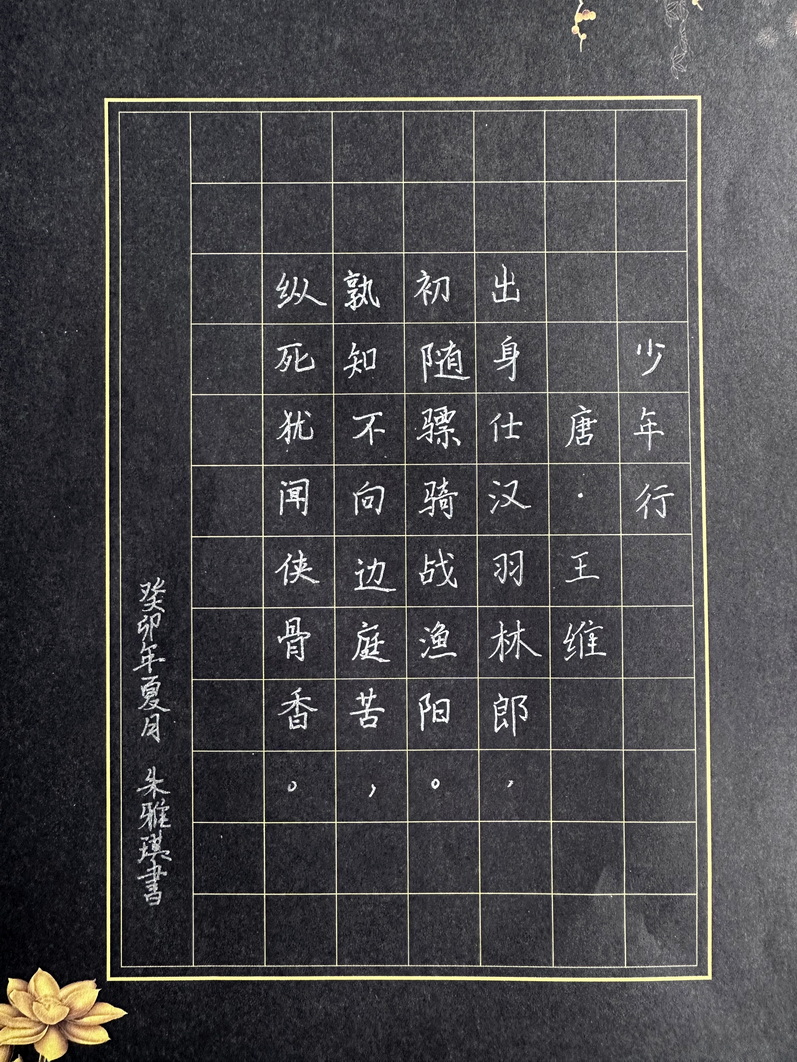 少年行
唐·王维
出身仕汉羽林郎，
初随骠骑战渔阳。
孰知不向边庭苦，
纵死犹闻侠骨香。
癸卯年夏月 朱雅琪書